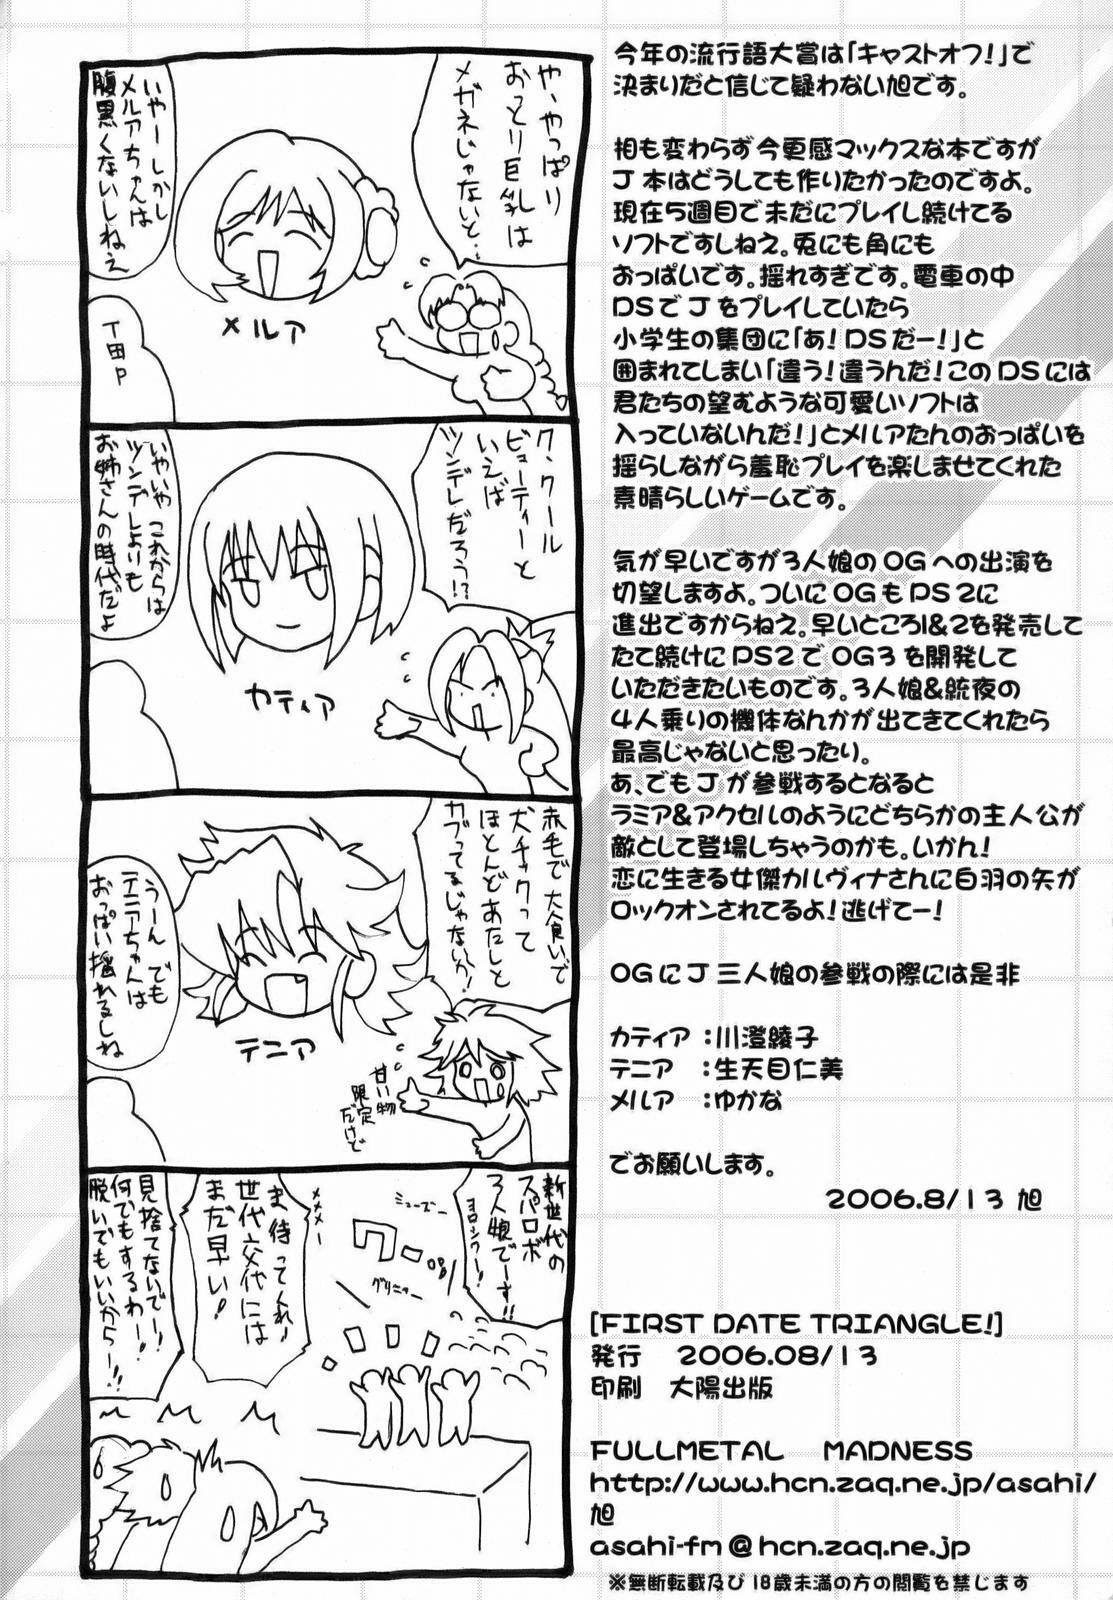 や、やっぱり
おっとり巨乳は
メガネじゃないと…
いやーしかし
メルアちゃんは
腹黒くないしねえ
メルア
T田P
ク、クール
ビューティーと
いえば
ツンデレだろう!?
いやいやこれからは
ツンデレよりも
お姉さんの時代だよ
カティア
赤毛で大食いで
犬チックって
ほとんどあたしと
カブってるじゃないか!
うーんでも
テニアちゃんは
おっぱい揺れるしね
テニア
甘い物
限定
だけど
新世代の
スパロボ
3人娘でーす!!
ヨロシクー!
ミューズー
グリニャー
ま、待ってくれ!
世代交代には
まだ早い!
見捨てないでー!
何でもするわー!
脱いでもいいからー!!
今年の流行語大賞は「キャストオフ!」で
決まりだと信じて疑わない旭です。
相も変わらず今更感マックスな本ですが
J本はどうしても作りたかったのですよ。
現在5週目で未だにプレイし続けてる
ソフトですしねえ。兎にも角にも
おっぱいです。揺れすぎです。電車の中
DSでJをプレイしていたら
小学生の集団に「あ!DSだー!」と
囲まれてしまい「違う!違うんだ!このDSには
君たちの望むような可愛いソフトは
入っていないんだ!」とメルアたんのおっぱいを
揺らしながら羞恥プレイを楽しませてくれた
素晴らしいゲームです。
気が早いですが3人娘のOGへの出演を
切望しますよ。ついにOGもPS2に
進出ですからねえ。早いところ1&2を発売して
たて続けにPS2でOG3を開発して
いただきたいものです。3人娘&統夜の
4人乗りの機体なんかが出てきてくれたら
最高じゃないと思ったり。
あ、でもJが参戦するとなると
ラミア&アクセルのようにどちらかの主人公が
敵として登場しちゃうのかも。いかん!
恋に生きる女傑カルヴィナさんに白羽の矢が
ロックオンされてるよ!逃げてー!
OGにJ三人娘の参戦の際には是非
カティア:川澄綾子
テニア :生天目仁美
メルア :ゆかな
でお願いします。
2006.8/13 旭
[FIRST DATE TRIANGLE!]
発行 2006.08/13
印刷 大陽出版
FULLMETAL MADNESS
http://www.hcn.zaq.ne.jp/asahi/
旭
asahi-fm@hcn.zaq.ne.jp
※無断転載及び18歳未満の方の閲覧を禁じます